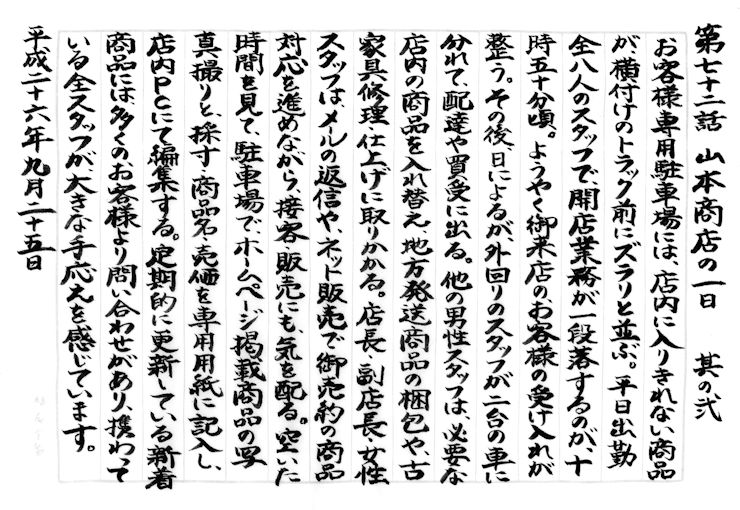 第七十二話　山本商店の一日　其の弐
お客様専用駐車場には、店内に入りきれない商品
が、横付けのトラック前にズラリと並ぶ。平日出勤
全八人のスタッフで、開店業務が一段落するのが、十
時五十分頃。ようやく御来店の、お客様の受け入れが
整う。その後、日によるが、外回りのスタッフが二台の車に
分れて、配達や買受に出る。他の男性スタッフは、必要な
店内の商品を入れ替え、地方発送商品の梱包や、古
家具修理、仕上げに取りかかる。店長、副店長、女性
スタッフは、メールの返信や、ネット販売で御売約の商品
対応を進めながら、接客、販売にも、気を配る。空いた
時間を見て、駐車場で、ホームページ掲載商品の写
真撮りと、採寸、商品名、売価を専用用紙に記入し、
店内PCにて編集する。定期的に更新している新着
商品には、多くの、お客様より問い合わせがあり、携わって
いる全スタッフが、大きな手応えを感じています。
平成二十六年九月二十五日